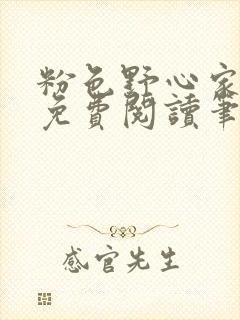 粉色野心家
免費閱讀筆
感官先生